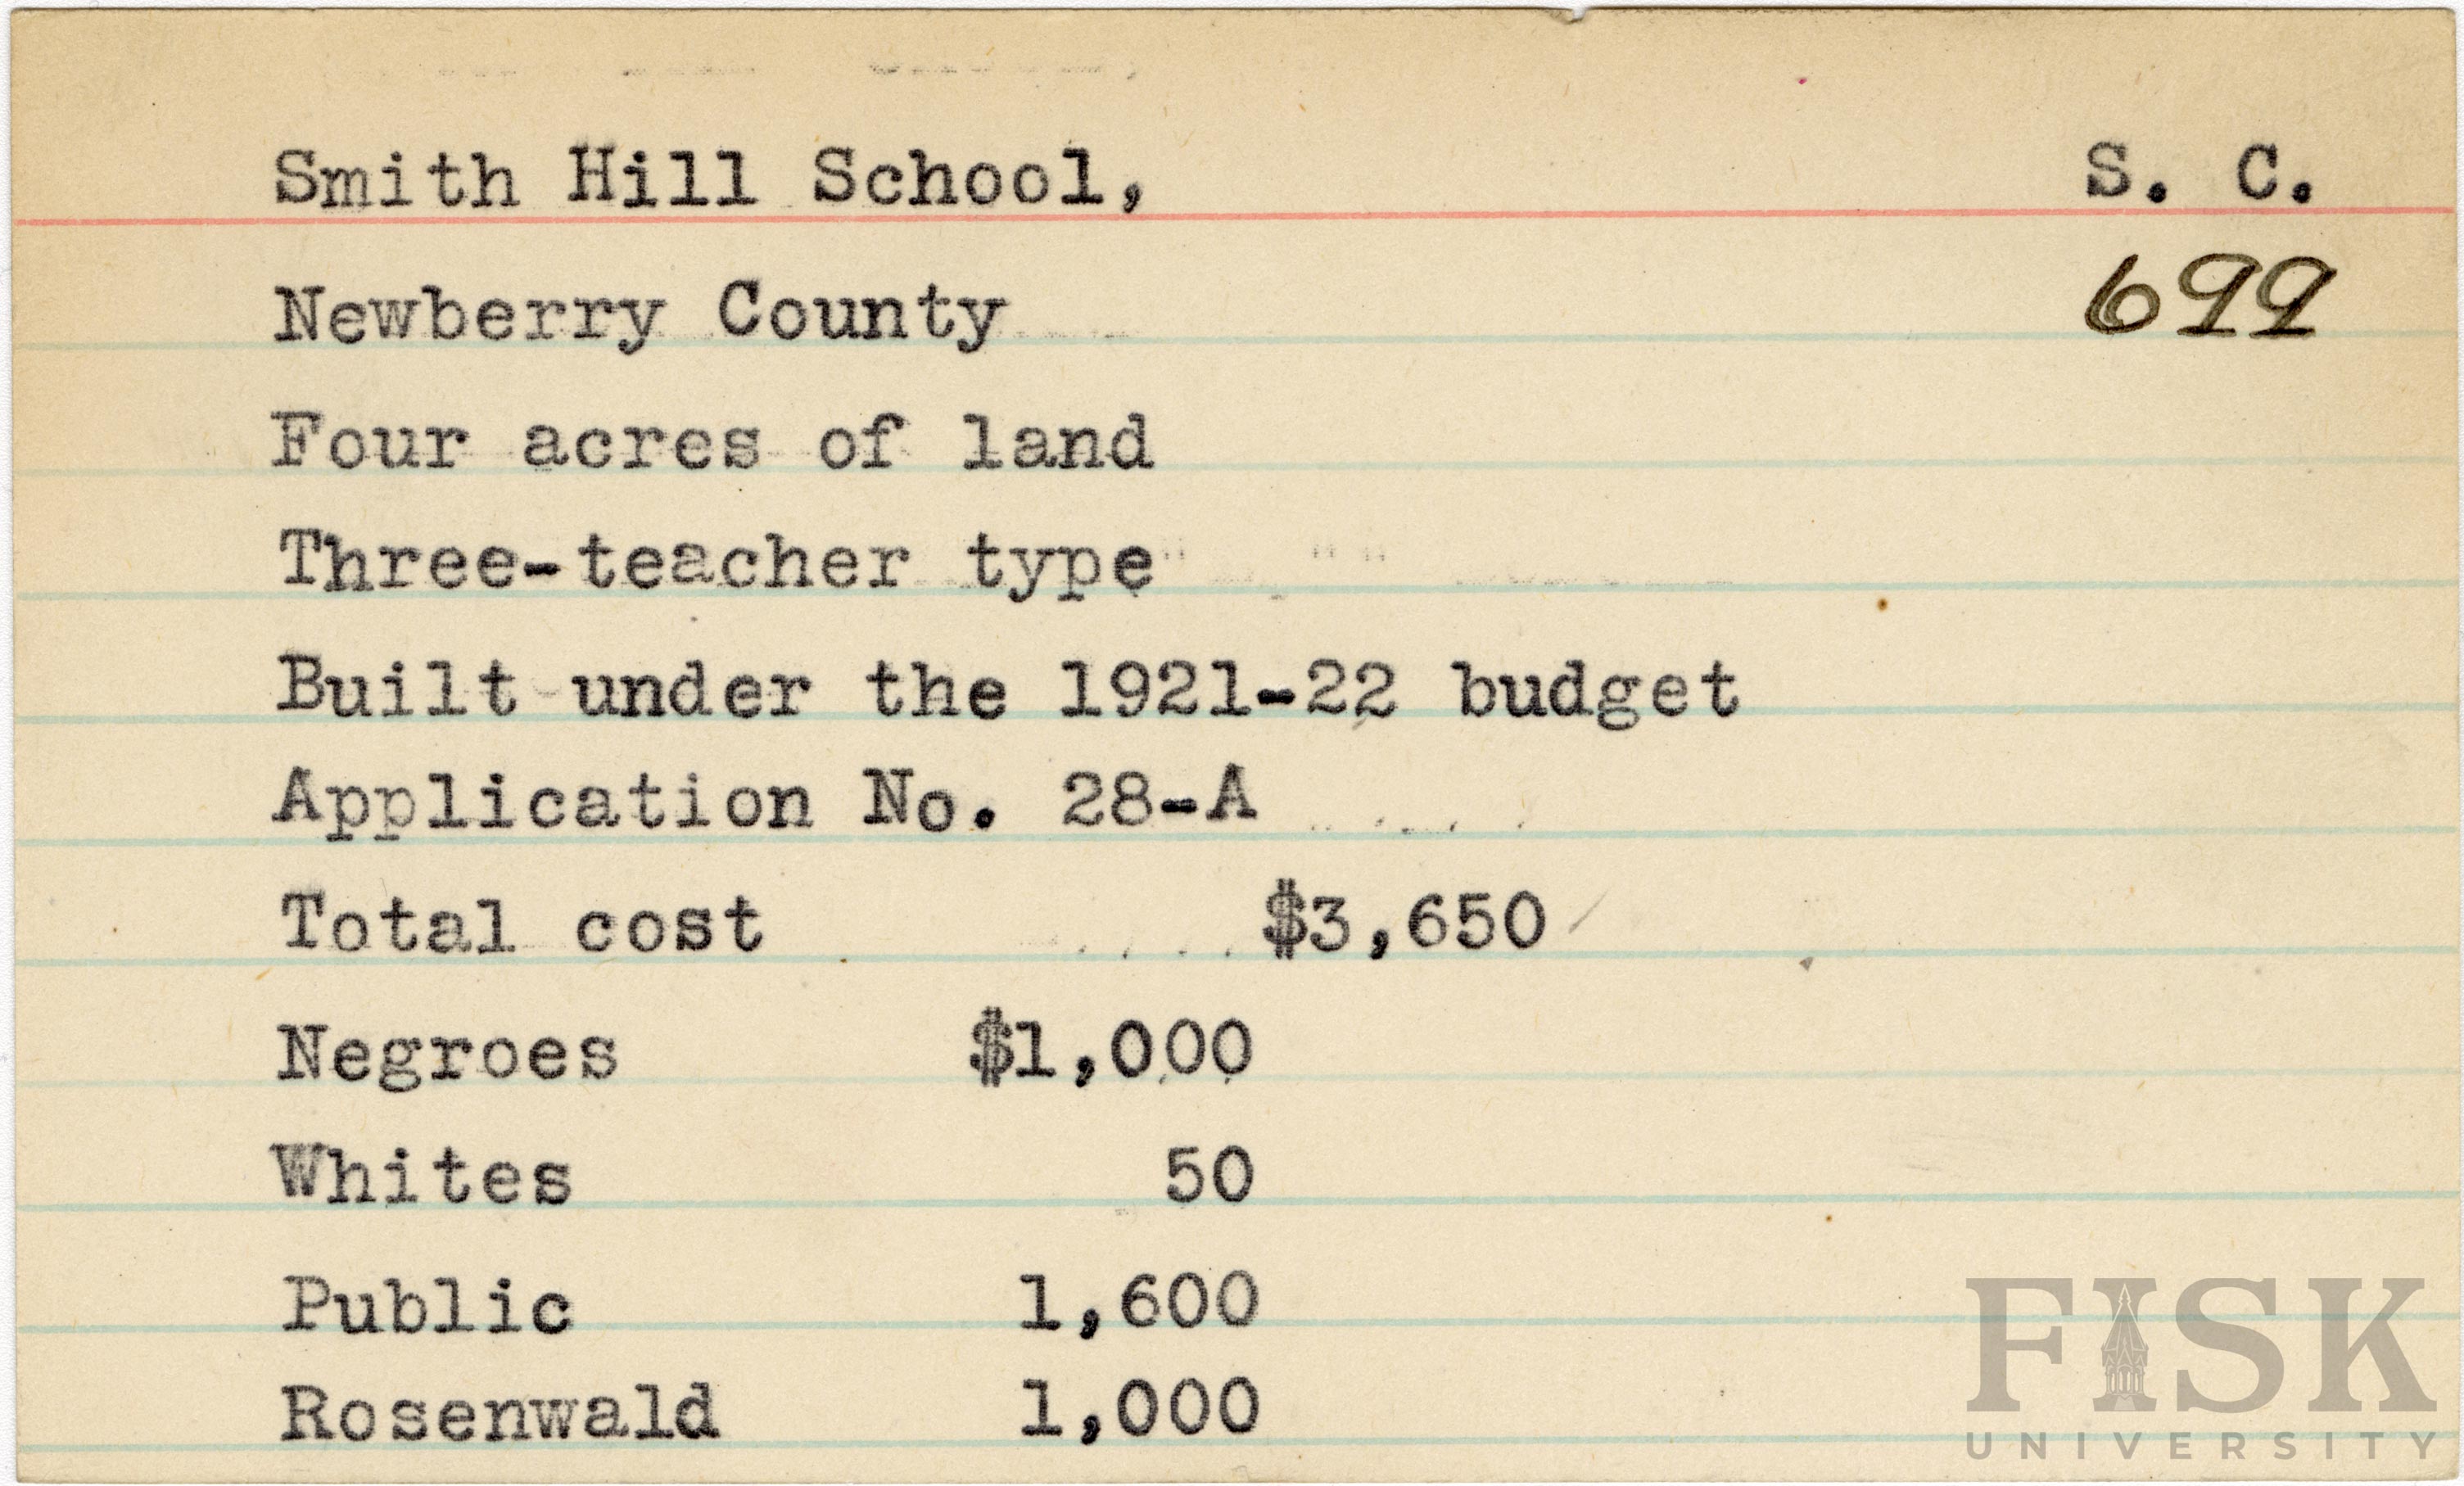 Smith Hill School, S. C.
Newberry County 699
Four acres of land
Three-teacher type
Built under the 1921-22 budget
Application No. 28-A
Total cost $3,650
Negroes $1,000
Whites 50
Public 1,600
Rosenwald 1,000
FISK
UNIVERSITY